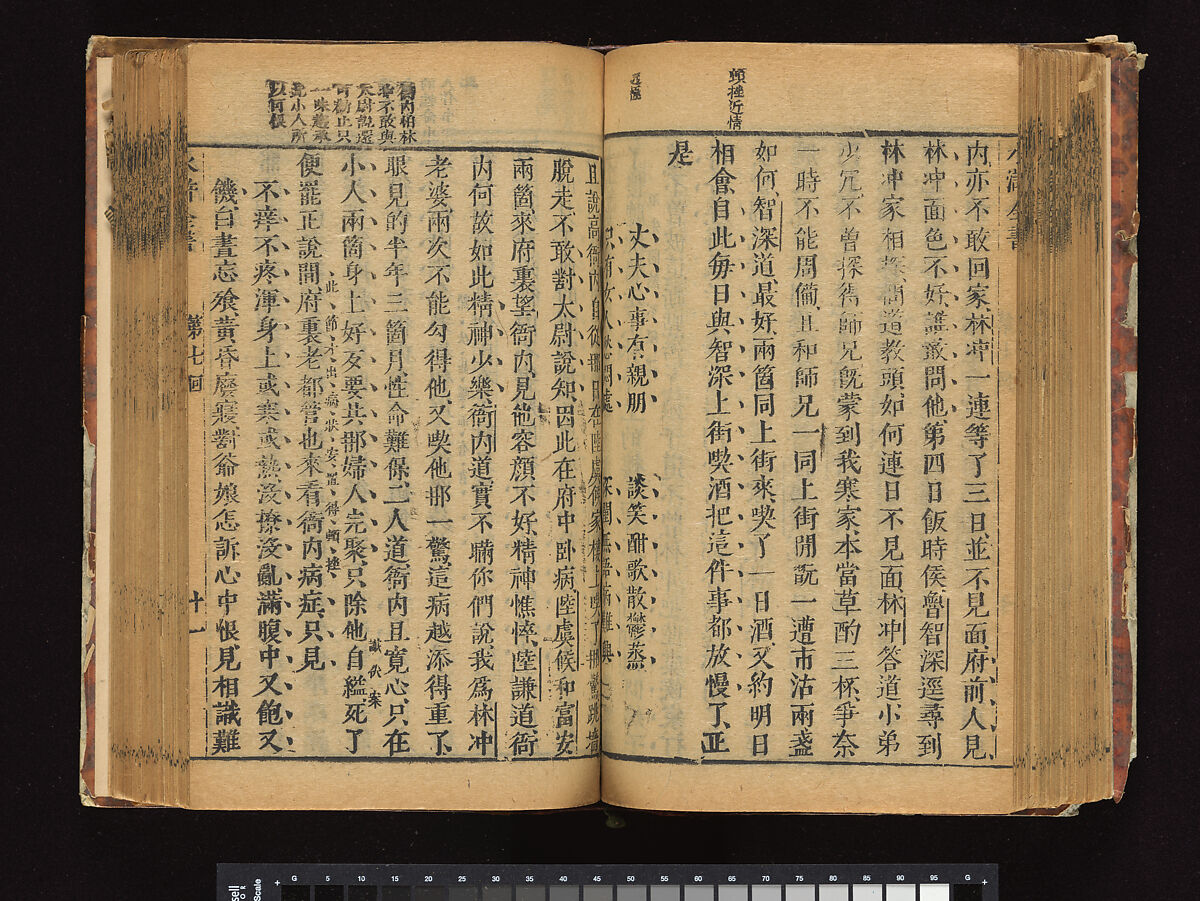 頓挫近情
內亦不敢回家林冲一連等了三日並不見面府前人見
林冲面色不好誰敢問他第四日飯時候魯智深逕尋到
林冲家相探問道教頭如何連日不見面林冲答道小弟
少冗不曾探得師兄既蒙到我寒家本當草酌三杯爭奈
一時不能周備且和師兄一同上街閒翫一遭市沽兩盞
如何智深道最好兩箇同上街來喫了一日酒又約明日
相會自此每日與智深上街喫酒把這件事都放慢了正
是
丈夫心事有親朋 談笑酣歌散鬱蒸
只有女人愁悶處 深閨無語病難興
且說高衙內自從那日在陸虞候家樓上喫了那驚跳墻
脫走不敢對太尉說知因此在府中卧病陸虞候和富安
兩箇來府裏望衙內見他容顏不好精神憔悴陸謙道衙
內何故如此精神少樂衙內道實不瞞你們說我爲林冲
老婆兩次不能勾得他又喫他那一驚這病越添得重了
眼見的半年三箇月性命難保二人道衙內且寬心只在
小人兩箇身上好歹要共那婦人完聚只除他自縊死了
獻伏案
便罷正說間府裏老都管也來看衙內病症只見
此節才出病狀安置得頓挫
不痒不疼渾身上或寒或熱沒撩沒亂滿腹中又飽又
饑白晝忘飡黃昏廢寢對爺娘怎訴心中恨見相識難
衙內怕林
冲不敢與
太尉說還
可勸止只
一味慫承
是小人所
以可恨
第七回
十一